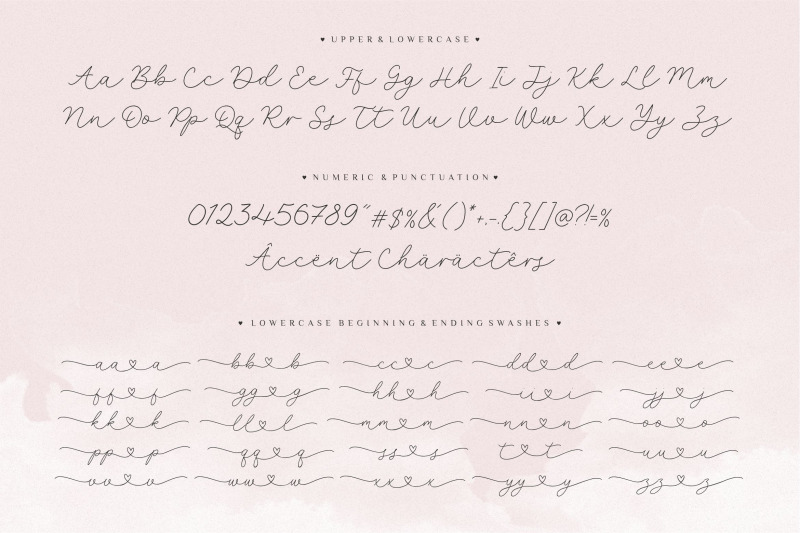 ♥ UPPER & LOWERCASE ♥
Aa Bb Cc Dd Ee Ff Gg Hh Ii Jj Kk Ll Mm
Nn Oo Pp Qq Rr Ss Tt Uu Vv Ww Xx Yy Zz
♥ NUMERIC & PUNCTUATION ♥
0123456789“#$%&´()*+,-.{}[]@?!=%
Âccënt Chäräctêrs
♥ LOWERCASE BEGINNING & ENDING SWASHES ♥
aa♡a bb♡b cc♡c dd♡d ee♡e
ff♡f gg♡g hh♡h ii♡i jj♡j
kk♡k ll♡l mm♡m nn♡n oo♡o
pp♡p qq♡q ss♡s tt♡t uu♡u
vv♡v ww♡w xx♡x yy♡y zz♡z